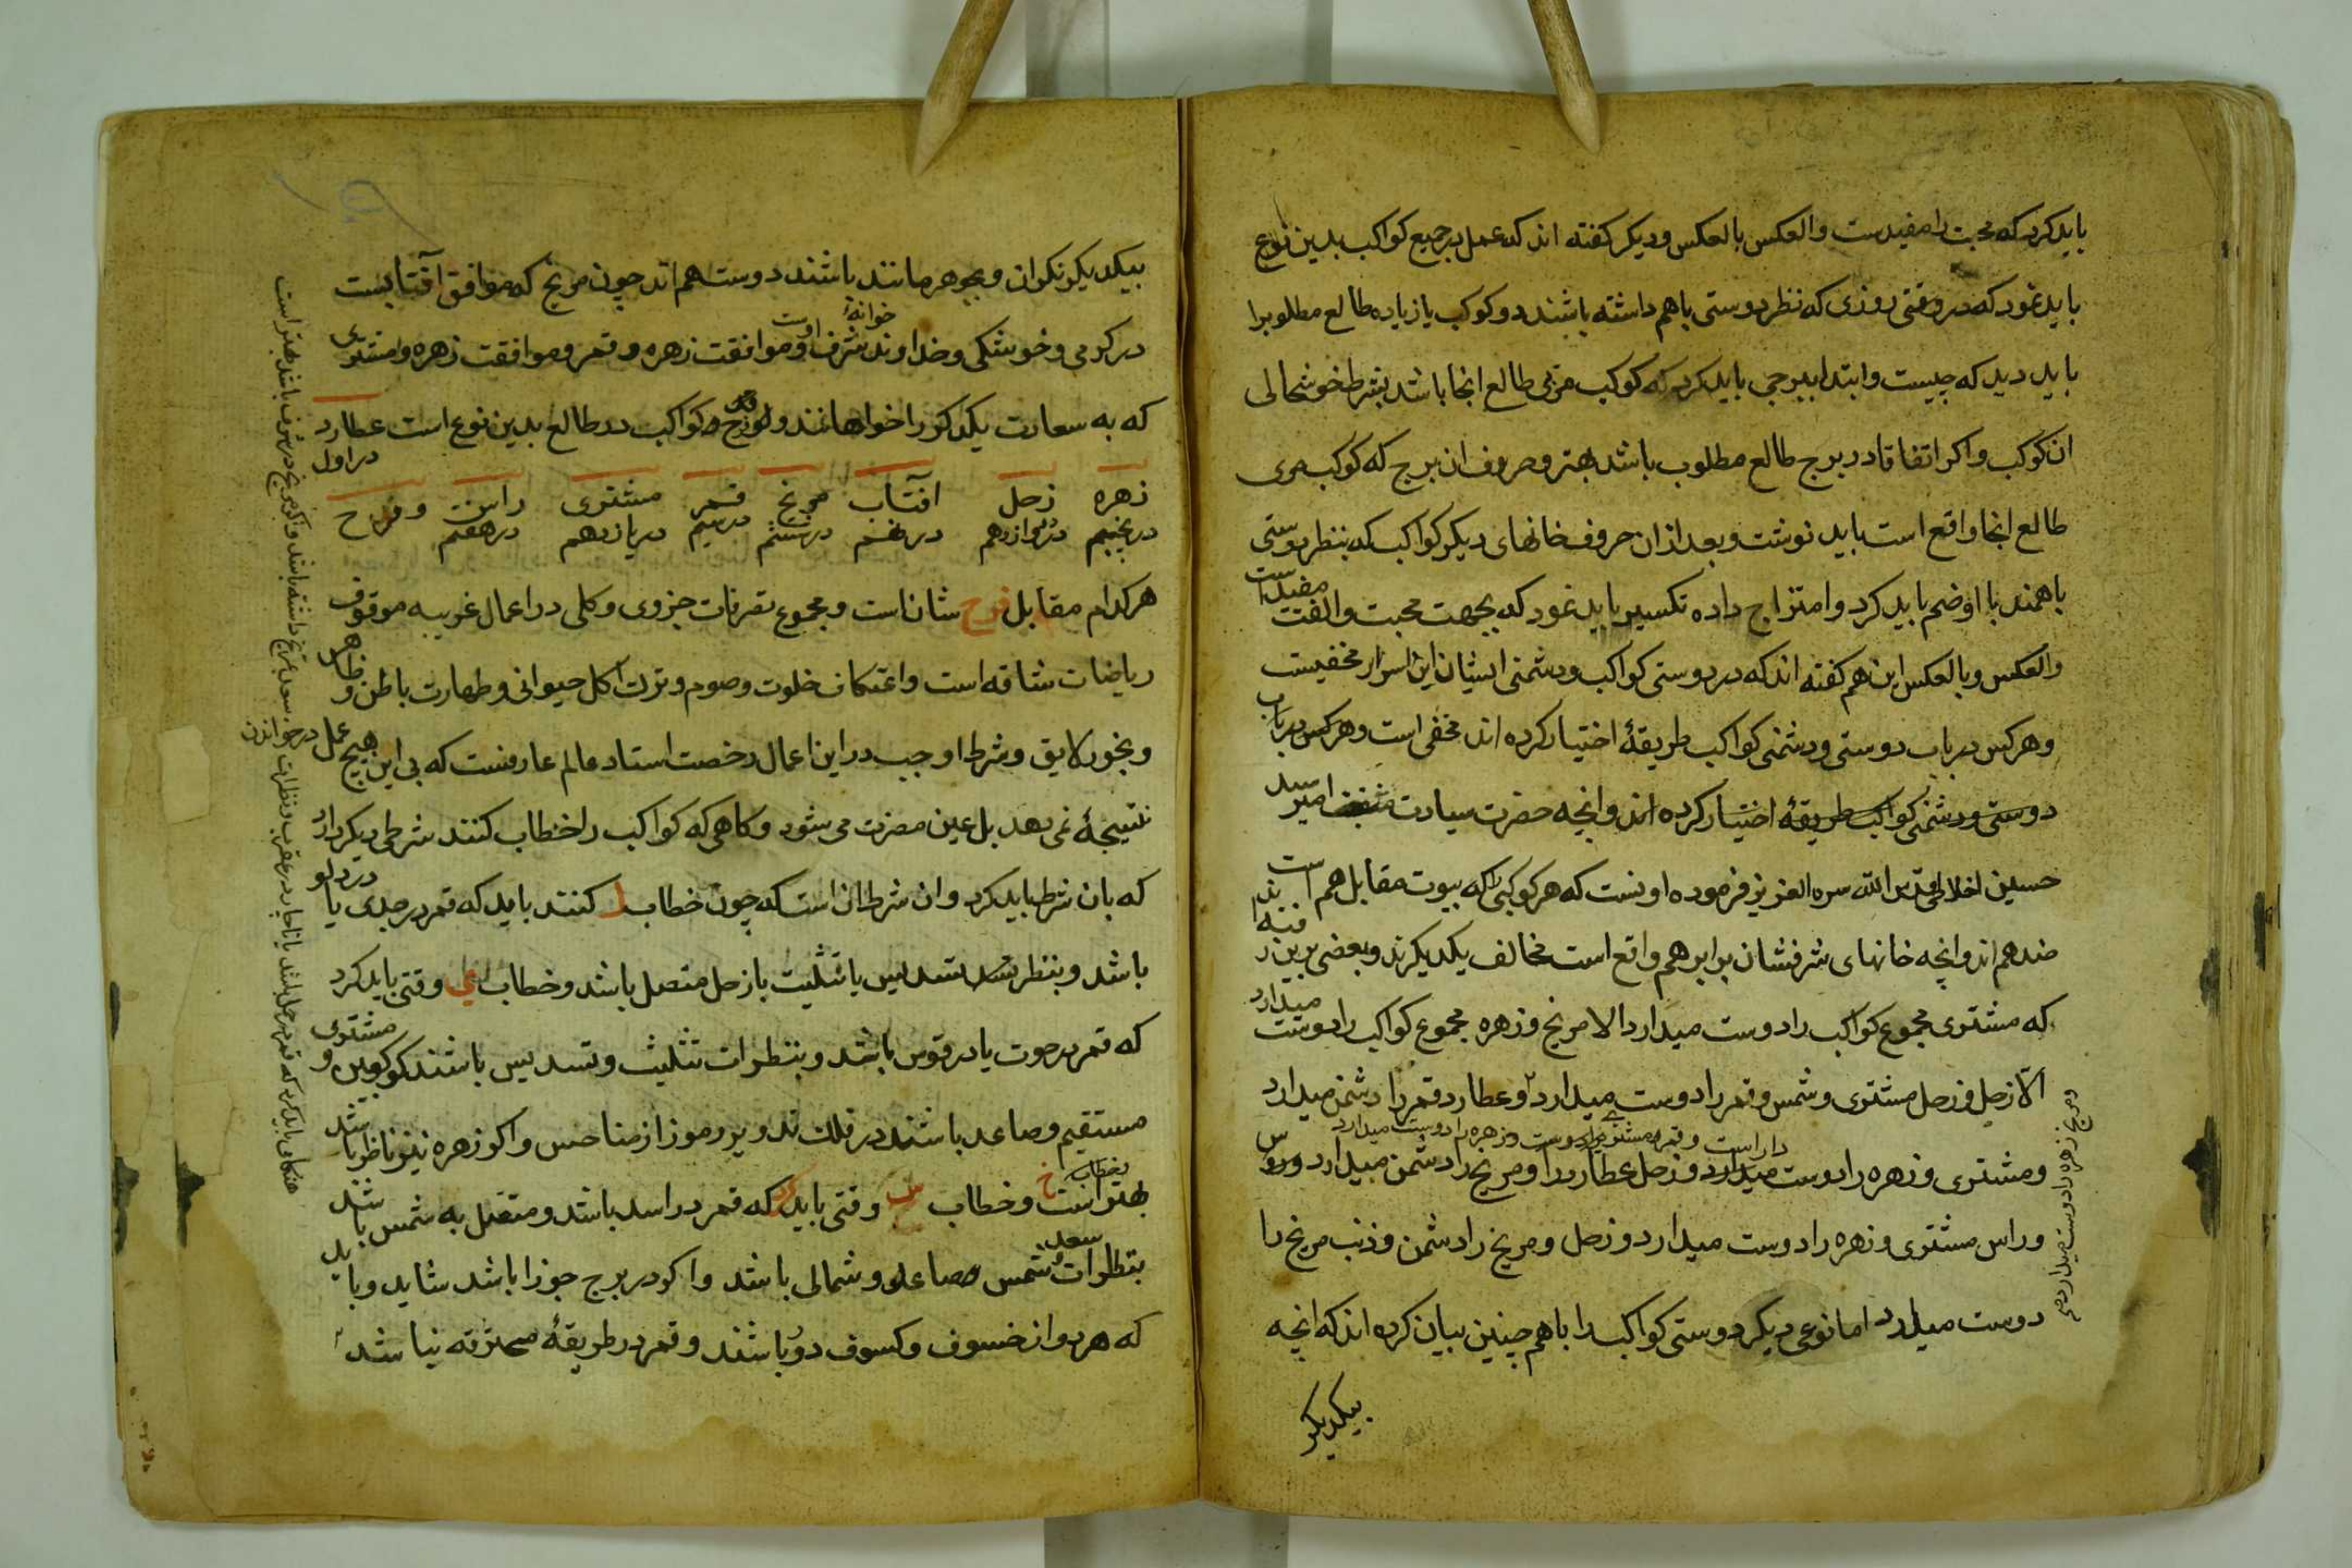 باید کرد که محبت را مفیدست والعکس بالعکس و دیکر کفته اند که عمل بر جمیع کواکب بدین نوع
باید نمود که در وقتی روزی که نظر دوستی باهم داشته باشند دو کوکب یا زیاده طالع مطلوبرا
باید دید که چیست و ابتدا ببرجی باید کرد که کوکب مربی طالع انجا باشد بشرط خوشحالی
ان کوکب و اکر اتفاقا در برج طالع مطلوب باشد بهتر و حروف ان برج که کوکب مربی
طالع انجا واقع است باید نوشت و بعد ازان حروف خانهای دیکر کواکب که بنظر دوستی
باهمند با او ضم باید کرد و امتزاج داده تکسیر باید نمود که بجهت محبت و الفت مفیداست
والعکس وبالعکس این هم کفته اند که در دوستی کواکب و دشمنی ایشان این اسرار مخفیست
و هرکس در باب دوستی و دشمنی کواکب طریقهٔ اختیار کرده اند مخفی است و هرکس در باب
دوستی و دشمنی کواکب طریقهٔ اختیار کرده اند و انچه حضرت سیادت امیر سید
حسین اخلاطی قدس الله سره العزیز فرموده اونست که هر کوکبی را که بیوت مقابل هم است
ضد هم اند و انچه خانهای شرفشان برابر هم واقع است مخالف یکدیکرند و بعضی برین رفته اند
که مشتری مجموع کواکب را دوست میدارد الا مریخ و زهره مجموع کواکب را دوست میدارد
الا زحل و زحل مشتری و شمس و قمر را دوست میدارد و عطارد قمر را دشمن میدارد
و قمر مشتری را دوست و زهره را دوست میدارد
و مشتری و زهره را دوست میدارد و زحل عطارد را و مریخ را دشمن میدارد
و راس مشتری و زهره را دوست میدارد و زحل و مریخ را دشمن و ذنب مریخ را
دوست میدارد اما نوعی دیکر دوستی کواکب را باهم چنین بیان کرده اند که انچه
بیکدیکر
و مریخ زهره را دوست میدارد
بیکدیکر نکران و بجوهر مانند باشند دوست هم اند چون مریخ که موافق آفتابست
در کرمی و خوشکی و خداوند خوانهٔ شرف اوست و موافقت زهره و قمر و موافقت زهره و مشتری
که به سعادت یکدکر را خواهانند و فرح کواکب در طالع بدین نوع است عطارد در اول
زهره زحل افتاب مریخ قمر مشتری راس و فرح
در پنجم در دوازدهم در نهم در ششم در سیم در یازدهم در هفتم
هرکدام مقابل فرح شان است و مجموع تصرفات جزوی و کلی در اعمال غریبه موقوف
ریاضات شاقه است و اعتکاف خلوت و صوم و ترک اکل حیوانی و طهارت باطن و ظاهر
و بخور لایق و شرط اوجب در این اعمال رخصت استاد عالم عارفست که بی این هیچ عمل
نتیجهٔ نمی دهد بل عین مضرت می شود و کاهی که کواکب را خطاب کنند شرطی دیکر دارد
که بان شرط باید کرد و ان شرط ان است که چون خطاب ل کنند باید که قمر در جدی یا در دلو
باشد و بنظر تسدیس یا تثلیث با زحل متصل باشد و خطاب ی وقتی باید کرد
که قمر در حوت یا در قوس باشد و بنظرات تثلیث و تسدیس باشند و مشتری
مستقیم و صاعد باشند در فلک تدویر و رموز از مناحس و اکر زهره نیز ناظر باشد
بهتر است و خطاب س وقتی باید کرد که قمر در اسد باشد و متصل به شمس باشد
بنظرات سعد شمس صاعد و شمالی باشد و اکر در برج جوزا باشد شاید و باید
که هر دو از خسوف و کسوف دور باشند و قمر در طریقهٔ محترقه نباشد